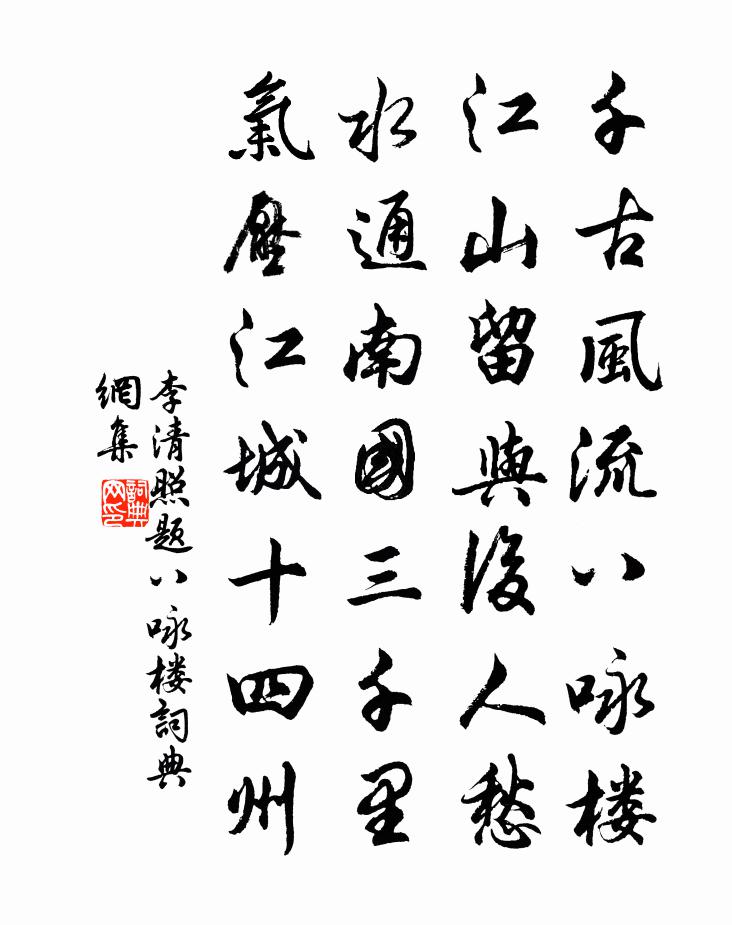 千古風流八咏楼
江山留與後人愁
水通南國三千里
氣壓江城十四州
李清照题八咏楼詞典
網集
詞典
网印